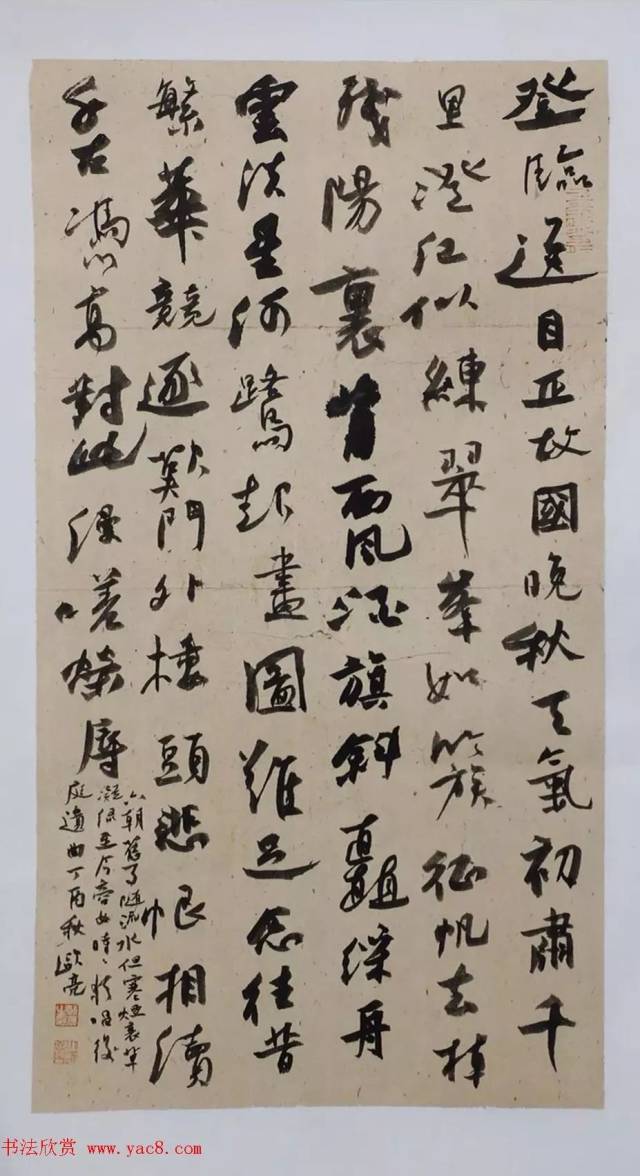 登臨送目正故國晚秋天氣初肅千
里澄江似練翠峯如簇征帆去棹
殘陽裏背西風酒旗斜矗綵舟
雲淡星河鷺起畫圖難足念往昔
繁華競逐歎門外樓頭悲恨相續
千古憑高對此漫嗟榮辱
六朝舊事隨流水但寒烟衰草
凝綠至今商女時時猶唱後
庭遺曲丁酉秋歐亮
书法欣赏 www.yac8.com